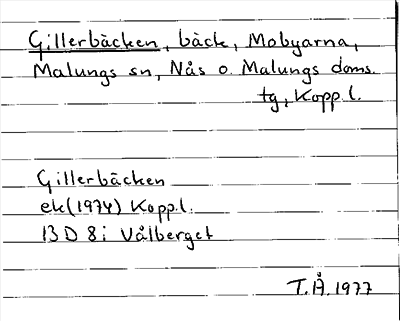 Gillerbäcken, bäck, Mobyarna,
Malungs sn, Nås o. Malungs doms.
tg, Kopp.l.
Gillerbäcken
ek(1974) Kopp.l.
13 D 8 i Vålberget
T.Å.1977